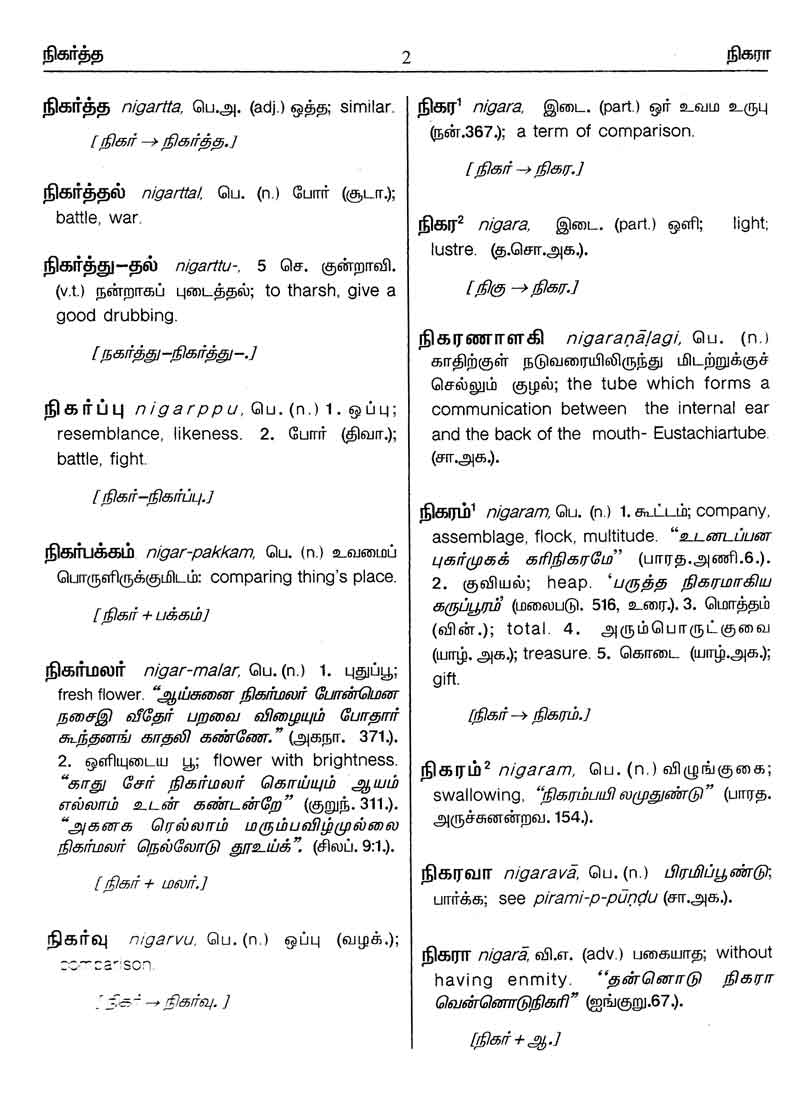 நிகர்த்த 2 நிகரா
நிகர்த்த nigartta, பெ.அ. (adj.) ஒத்த; similar.
[நிகர் → நிகர்த்த.]
நிகர்த்தல் nigarttal, பெ. (n.) போர் (சூடா.);
battle, war.
நிகர்த்து-தல் nigarttu-, 5 செ. குன்றாவி.
(v.t.) நன்றாகப் புடைத்தல்; to tharsh, give a
good drubbing.
[நகர்த்து-நிகர்த்து-.]
நிகர்ப்பு nigarppu, பெ. (n.) 1. ஒப்பு;
resemblance, likeness. 2. போர் (திவா.);
battle, fight.
[நிகர்-நிகர்ப்பு.]
நிகர்பக்கம் nigar-pakkam, பெ. (n.) உவமைப்
பொருளிருக்குமிடம்: comparing thing's place.
[நிகர் + பக்கம்]
நிகர்மலர் nigar-malar, பெ. (n.) 1. புதுப்பூ;
fresh flower. “ஆய்சுனை நிகர்மலர் போன்மென
நசைஇ வீதேர் பறவை விழையும் போதார்
கூந்தனங் காதலி கண்ணே.” (அகநா. 371.).
2. ஒளியுடைய பூ; flower with brightness.
“காது சேர் நிகர்மலர் கொய்யும் ஆயம்
எல்லாம் உடன் கண்டன்றே” (குறுந். 311.).
“அகனக ரெல்லாம் மரும்பவிழ்முல்லை
நிகர்மலர் நெல்லோடு தூஉய்க்”. (சிலப். 9:1.).
[நிகர் + மலர்.]
நிகர்வு nigarvu, பெ. (n.) ஒப்பு (வழக்.);
comparison.
[நிகர் → நிகர்வு.]
நிகர¹ nigara, இடை. (part.) ஓர் உவம உருபு
(நன்.367.); a term of comparison.
[நிகர் → நிகர.]
நிகர² nigara, இடை. (part.) ஒளி; light;
lustre. (த.சொ.அக.).
[நிகு → நிகர.]
நிகரணாளகி nigaraṇāḷagi, பெ. (n.)
காதிற்குள் நடுவரையிலிருந்து மிடற்றுக்குச்
செல்லும் குழல்; the tube which forms a
communication between the internal ear
and the back of the mouth- Eustachiartube.
(சா.அக.).
நிகரம்¹ nigaram, பெ. (n.) 1. கூட்டம்; company,
assemblage, flock, multitude. “உடனடப்பன
புகர்முகக் கரிநிகரமே” (பாரத.அணி.6.).
2. குவியல்; heap. ‘பருத்த நிகரமாகிய
கருப்பூரம்’ (மலைபடு. 516, உரை.). 3. மொத்தம்
(வின்.); total. 4. அரும்பொருட்குவை
(யாழ். அக.); treasure. 5. கொடை (யாழ்.அக.);
gift.
[நிகர் → நிகரம்.]
நிகரம்² nigaram, பெ. (n.) விழுங்குகை;
swallowing, “நிகரம்பயி லமுதுண்டு” (பாரத.
அருச்சுனன்றவ. 154.).
நிகரவா nigaravā, பெ. (n.) பிரமிப்பூண்டு;
பார்க்க; see pirami-p-pūṇḍu (சா.அக.).
நிகரா nigarā, வி.எ. (adv.) பகையாத; without
having enmity. “தன்னொடு நிகரா
வென்னொடுநிகரி” (ஐங்குறு.67.).
[நிகர் + ஆ.]